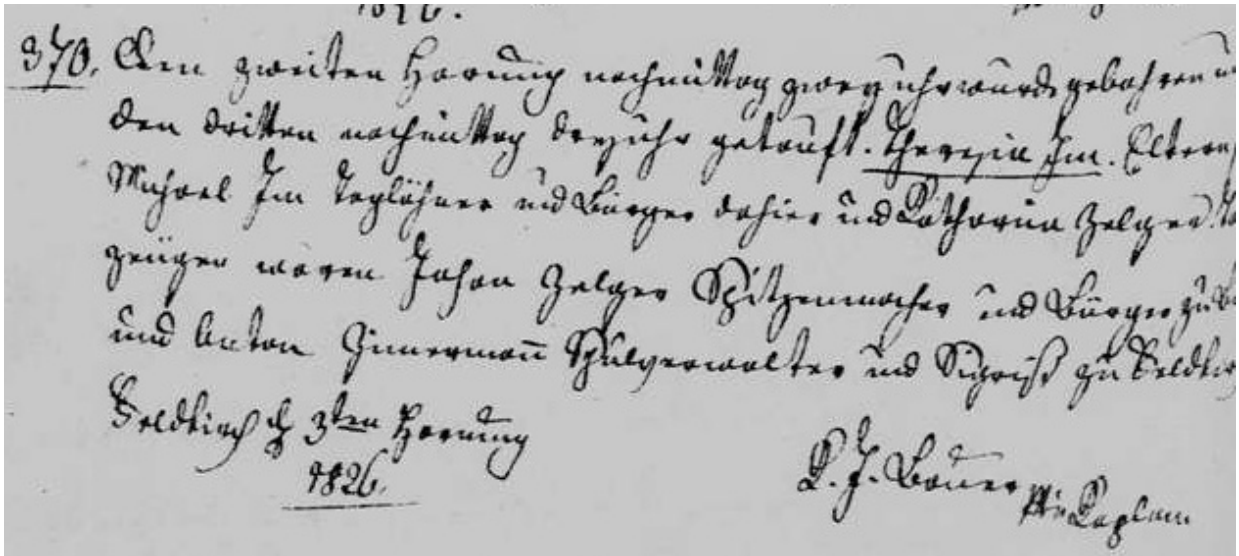 1826.
370. Den zweiten Hornung nachmittag zwey uhr wurde gebohren u
den dritten nachmittag drey uhr getauft. Theresia Im. Eltern
Michael Im Taglöhner und Bürger dahier und Katharina Zelger. T
zeügen waren Johan Zelger Spitzenmacher und Bürger zu
und Anton Zimermañ Schulverwalter und Sigrist zu Feldkir
Feldkirch d 3ten Hornung
1826.
K. J. Bauer Kaplan